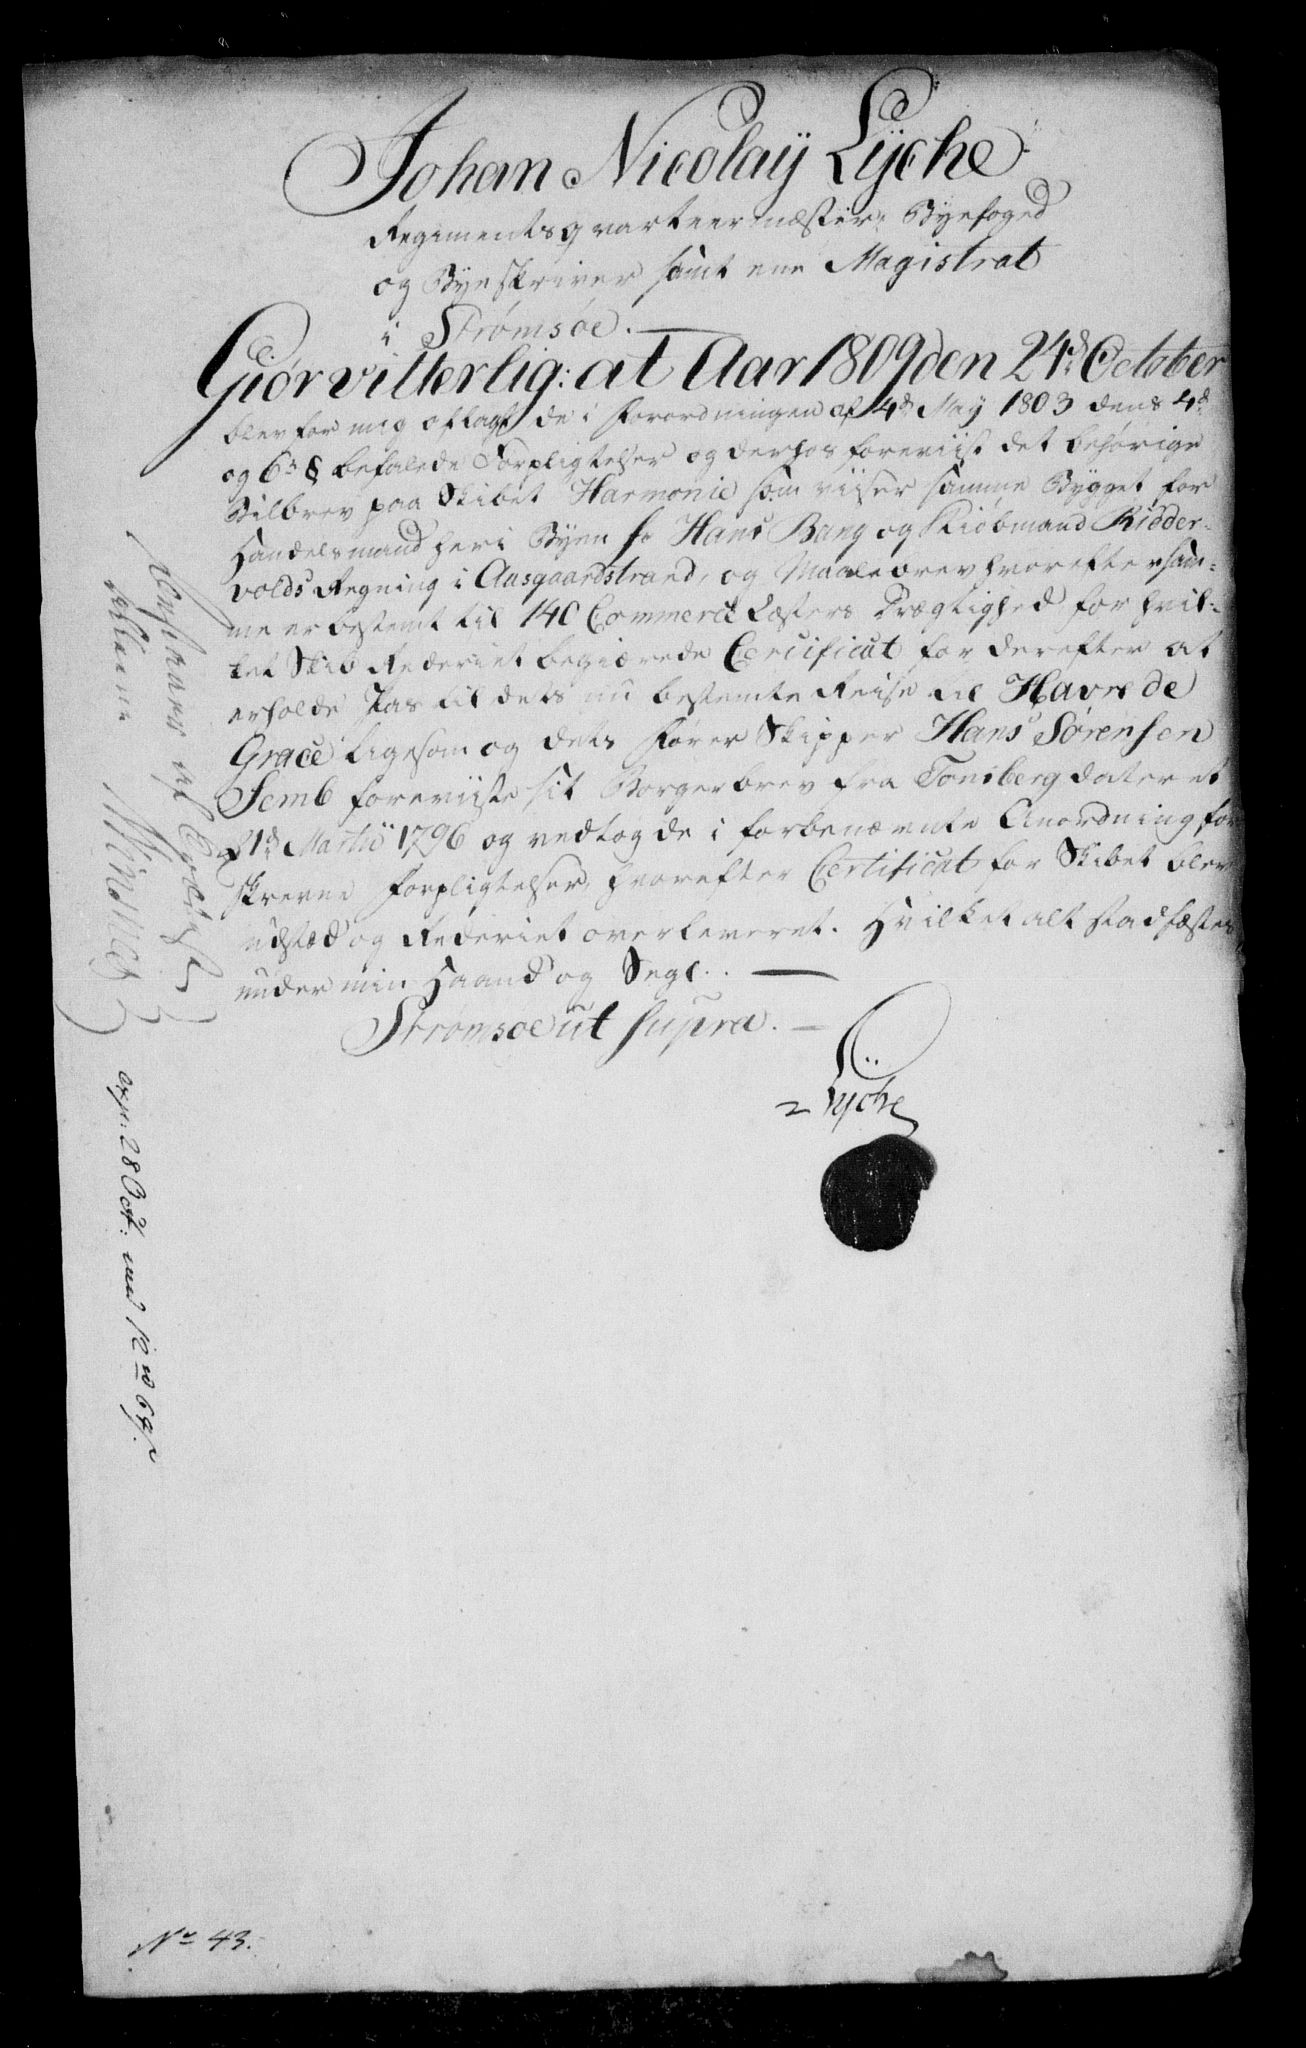 Johan Nicolaÿ Lÿche
Regimentsqvarteermester, Byefoged
og Byeskriver samt ene Magistrat
i Strømsøe.
Giør vitterlig: at Aar 1809 den 24d: October
blev for mig aflagt de i Forordningen af 4d: Maÿ 1803 dens 4d:
og 6te § befalede Forpligtelser og derhos foreviist det behørige
Bilbrev paa Skibet Harmonie som viiser samme Bygget for
Handelsmand her i Byen Sr Hans Bang og Kiøbmand Ridder-
volds Regning i Aasgaardstrand, og Maalebrev hvorefter sam-
me er bestemt til 140 Commerce Læsters Drægtighed for hvil-
ket Skib Rederiet begiærede Certificat for derefter at
erholde Pas til dets nu bestemte Reise til Havre de
Grace ligesom og dets Fører Skipper Hans Sørensen
Semb foreviiste sit Borgerbrev fra Tønsberg dateret
d 1d: Martii 1796 og vedtog de i forbenævnte Anordning for
skrevne Forpligtelser, hvorefter Certificat for Skibet blev
udstæd og Rederiet overleveret. Hvilket alt stadfæstes
under min Haand og Segl.
Strømsøe ut supra.
Lÿche
exp: 28 Oct: med 12
No 43.